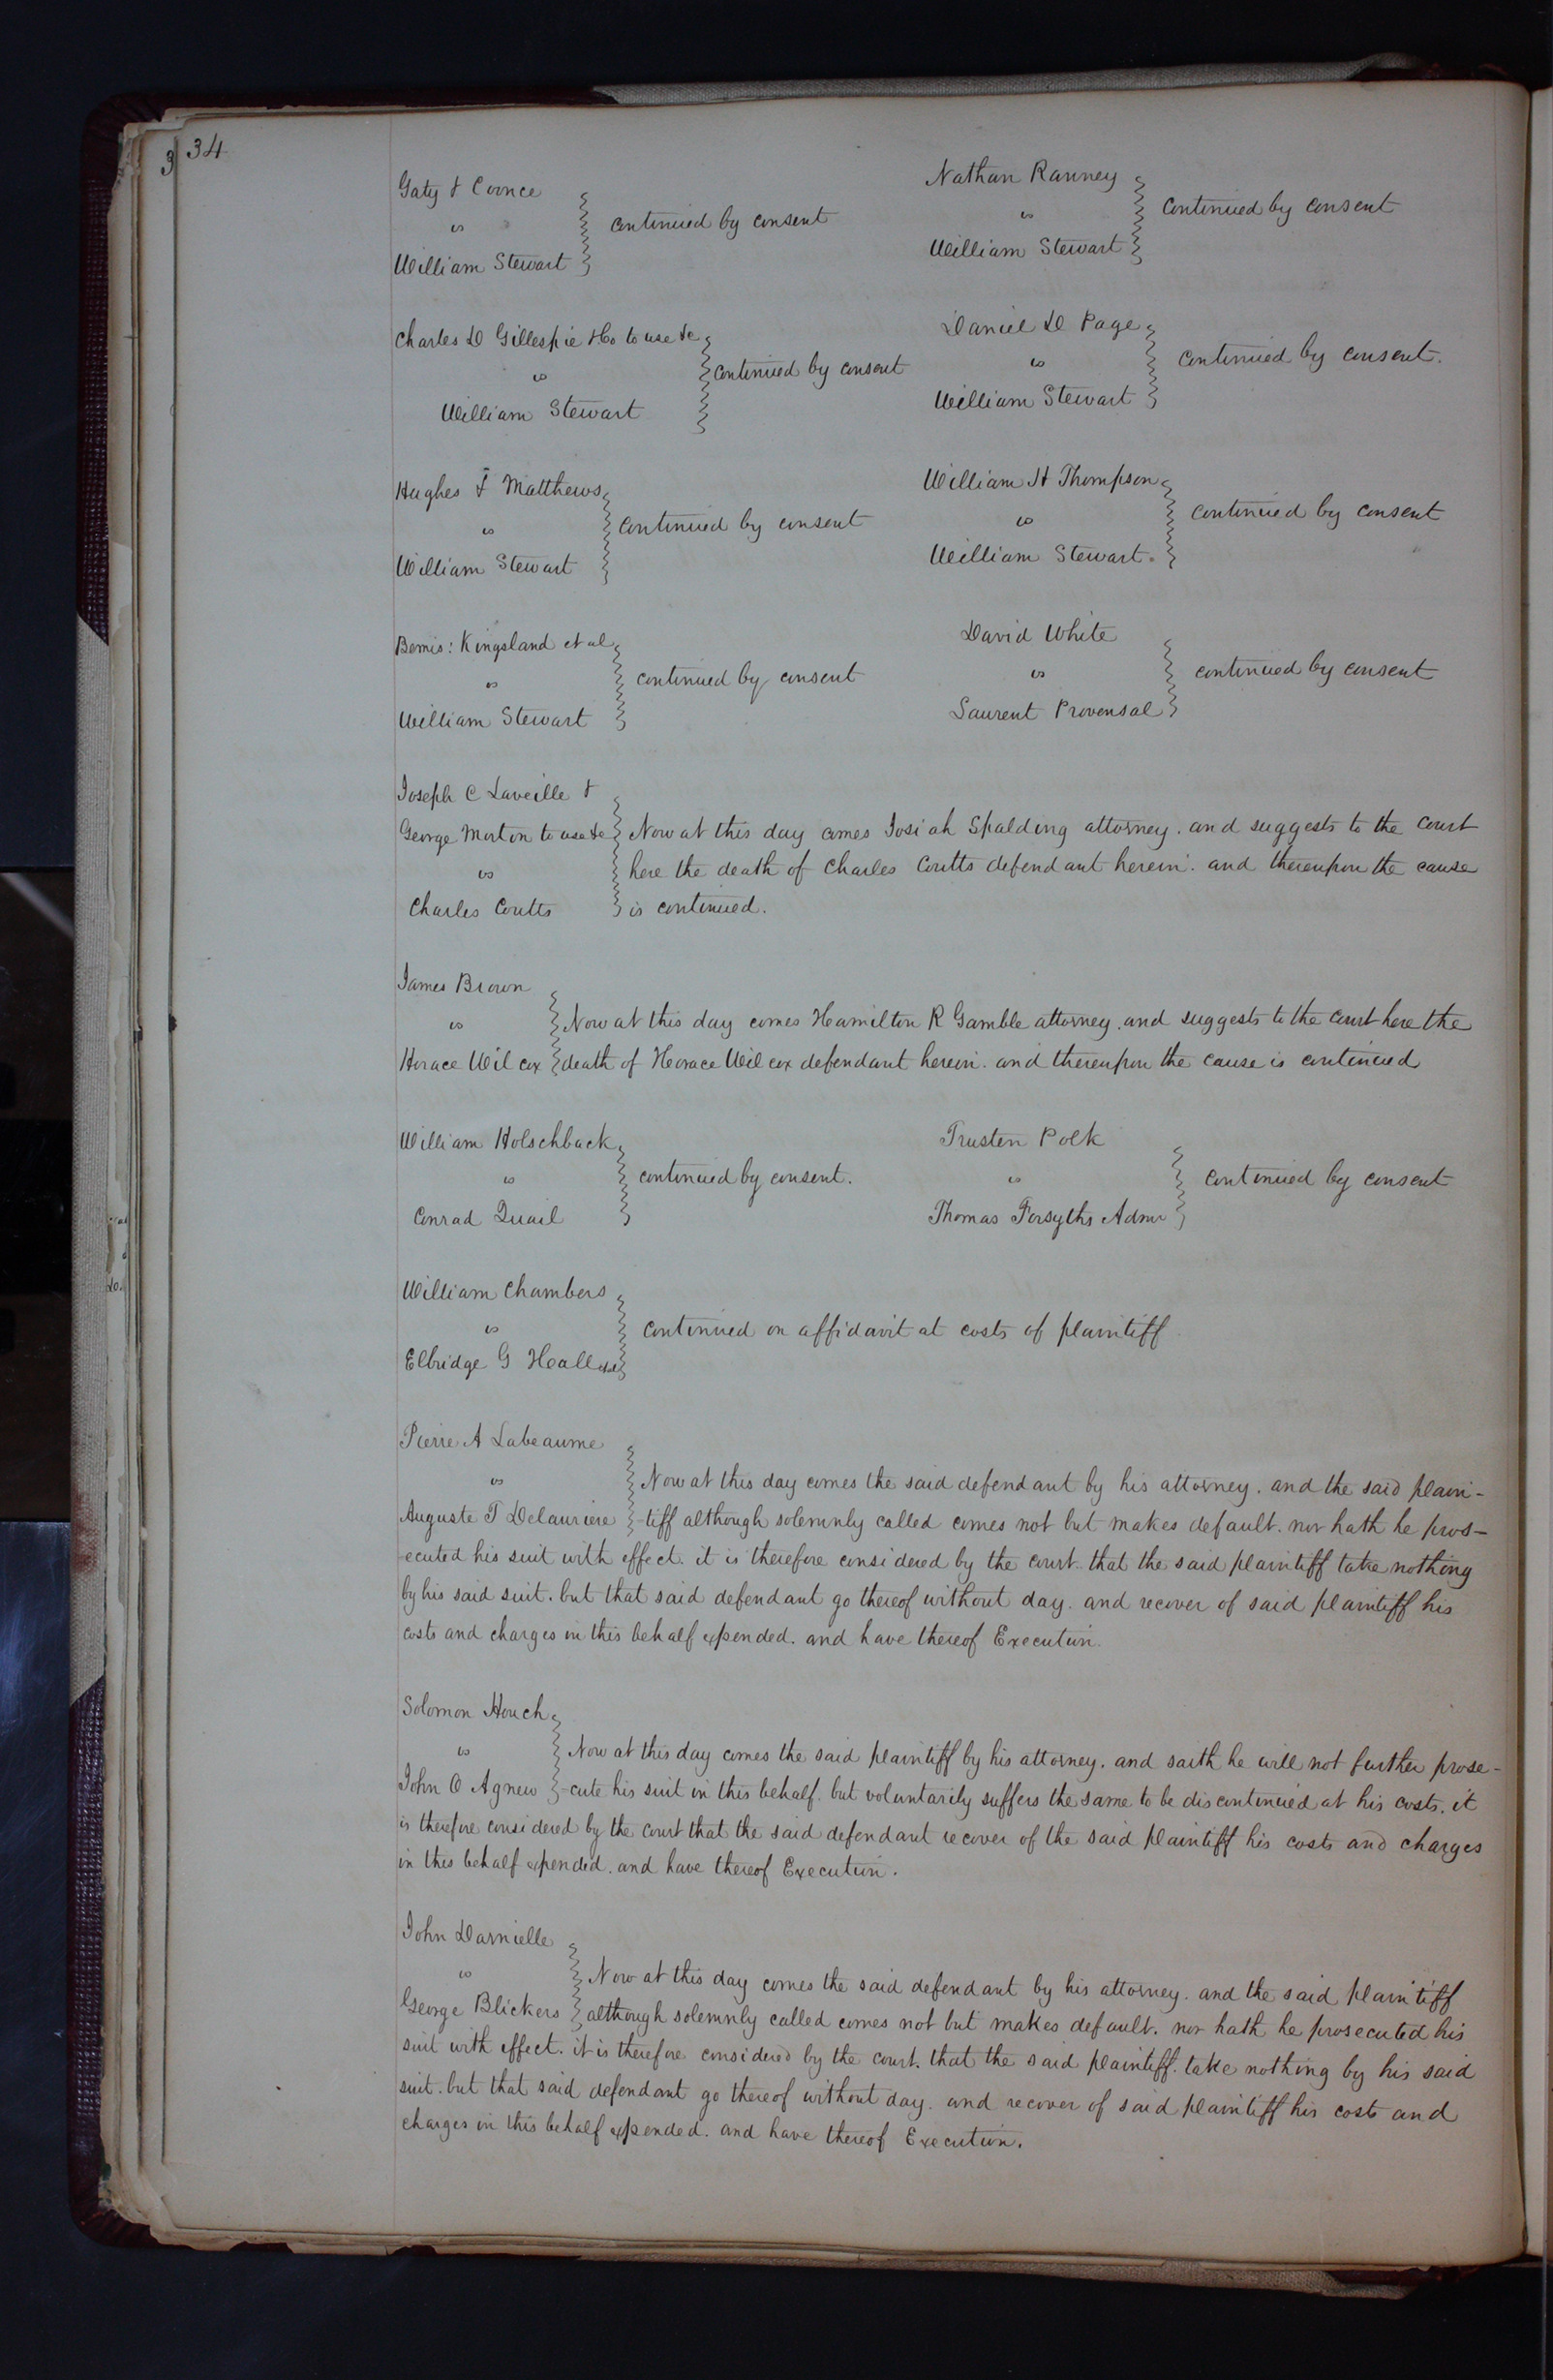 34
3
Gaty & Coonce
vs
William Stewart
continued by consent
Nathan Ranney
vs
William Stewart
continued by consent
Charles D Gillespie & Co to use &c
vs
William Stewart
continued by consent
Daniel D Page
vs
William Stewart
continued by consent.
Hughes & Matthews
vs
William Stewart
continued by consent
William H Thompson
vs
William Stewart.
continued by consent
Bemis: Kingsland et al
vs
William Stewart
continued by consent
David White
vs
Laurent Provensal
continued by consent
Joseph C Laveille &
George Morton to use &c
vs
Charles Coutts
Now at this day comes Josiah Spalding attorney. and suggests to the court
here the death of Charles Coutts defendant herein. and thereupon the cause
is continued.
James Brown
vs
Horace Wilcox
Now at this day comes Hamilton R Gamble attorney. and suggests to the court here the
death of Horace Wilcox defendant herein. and thereupon the cause is continued
William Holschback
vs
Conrad Quail
continued by consent.
Trusten Polk
vs
Thomas Forsyths Admr
continued by consent
William Chambers
vs
Elbridge G Hall
continued on affidavit at costs of plaintiff
Pierre A Labeaume
vs
Now at this day comes the said defendant by his attorney. and the said plain-
Auguste T Delauriere -tiff although solemnly called comes not but makes default. nor hath he pros-
-ecuted his suit with effect. it is therefore considered by the court. that the said plaintiff take nothing
by his said suit. but that said defendant go thereof without day. and recover of said plaintiff his
costs and charges in this behalf expended. and have thereof Execution.
Solomon Houch
vs
Now at this day comes the said plaintiff by his attorney. and saith he will not further prose-
John O Agnew -cute his suit in this behalf. but voluntarily suffers the same to be discontinued at his costs. it
is therefore considered by the court that the said defendant recover of the said plaintiff his costs and charges
in this behalf expended. and have thereof Execution.
John Darnielle
vs
Now at this day comes the said defendant by his attorney. and the said plaintiff
George Blickers although solemnly called comes not but makes default. nor hath he prosecuted his
suit with effect. it is therefore considered by the court. that the said plaintiff. take nothing by his said
suit. but that said defendant go thereof without day. and recover of said plaintiff his costs and
charges in this behalf expended. and have thereof Execution.